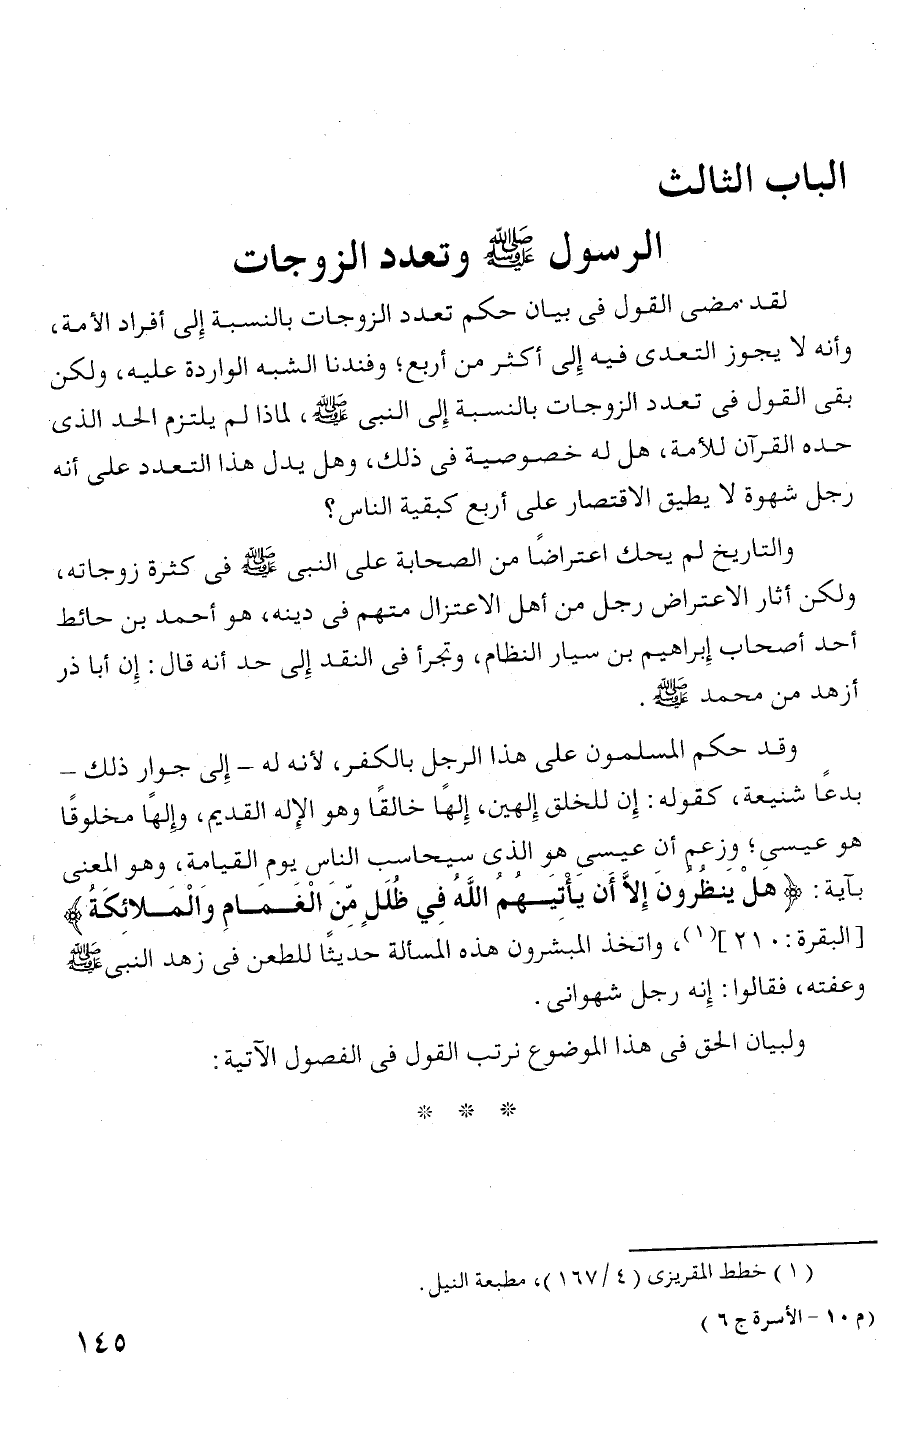 الباب الثالث
الرسول ﷺ وتعدد الزوجات
لقد مضى القول فى بيان حكم تعدد الزوجات بالنسبة إلى أفراد الأمة،
وأنه لا يجوز التعدى فيه إلى أكثر من أربع؛ وفندنا الشبه الواردة عليه، ولكن
بقى القول فى تعدد الزوجات بالنسبة إلى النبى ﷺ، لماذا لم يلتزم الحد الذى
حده القرآن للأمة، هل له خصوصية فى ذلك، وهل يدل هذا التعدد على أنه
رجل شهوة لا يطيق الاقتصار على أربع كبقية الناس؟
والتاريخ لم يحك اعتراضًا من الصحابة على النبى ﷺ فى كثرة زوجاته،
ولكن أثار الاعتراض رجل من أهل الاعتزال متهم فى دينه، هو أحمد بن حائط
أحد أصحاب إبراهيم بن سيار النظام، وتجرأ فى النقد إلى حد أنه قال: إن أبا ذر
أزهد من محمد ﷺ.
وقد حكم المسلمون على هذا الرجل بالكفر، لأنه له – إلى جوار ذلك –
بدعًا شنيعة، كقوله: إن للخلق إلهين، إلهًا خالقًا وهو الإله القديم، وإلهًا مخلوقًا
هو عيسى؛ وزعم أن عيسى هو الذى سيحاسب الناس يوم القيامة، وهو المعنى
بآية: ﴿هَلْ يَنظُرُونَ إِلاَّ أَن يَأْتِيَهُمُ اللَّهُ فِي ظُلَلٍ مِّنَ الْغَمَامِ وَالْمَلائِكَةُ﴾
[البقرة: ٢١٠](١)، واتخذ المبشرون هذه المسألة حديثًا للطعن فى زهد النبى ﷺ
وعفته، فقالوا: إنه رجل شهوانى.
ولبيان الحق فى هذا الموضوع نرتب القول فى الفصول الآتية:
* * *
(١) خطط المقريزى (٤/ ١٦٧)، مطبعة النيل.
(م ١٠ – الأسرة ج ٦)
١٤٥